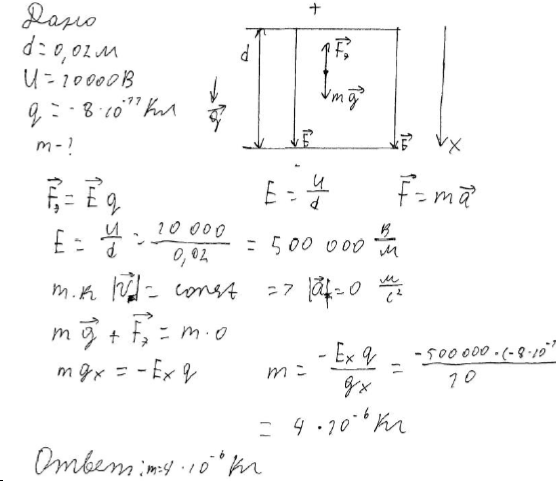 Дано
d = 0,02 м
U = 10000 В
q = -8·10⁻¹¹ Кл
m - ?
+
d
F⃗э
mg⃗
g⃗
E⃗
E⃗
X
-
F⃗э = E⃗ q E = U/d F⃗ = ma⃗
E = U/d = 10 000/0,02 = 500 000 В/м
т.к |v⃗| = const => |a⃗| = 0 м/с²
mg⃗ + F⃗э = m·0
mgx = -Ex q m = -Ex q/gx = -500000·(-8·10⁻¹/10
= 4·10⁻⁶ Кл
Ответ: m=4·10⁻⁶ Кл